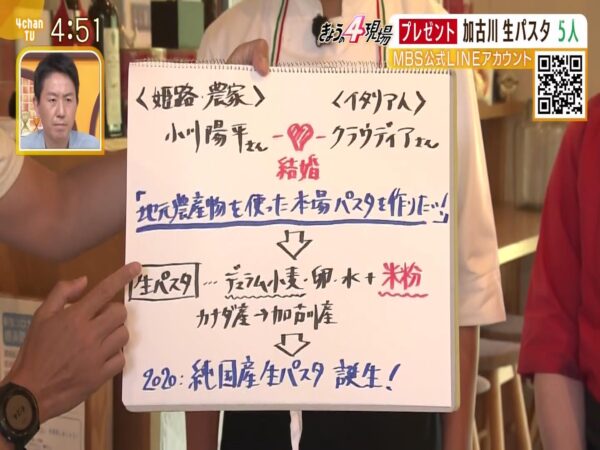 4chan
TV
4:51
きょうの4現場
プレゼント 加古川 生パスタ 5人
MBS公式LINEアカウント
〈姫路・農家〉 〈イタリア人〉
小川陽平さん - ♥ - クラウディアさん
結婚
「地元農産物を使った本場パスタを作りたい!」
生パスタ … デュラム小麦・卵・水 + 米粉
カナダ産→加古川産
2020:純国産生パスタ 誕生!